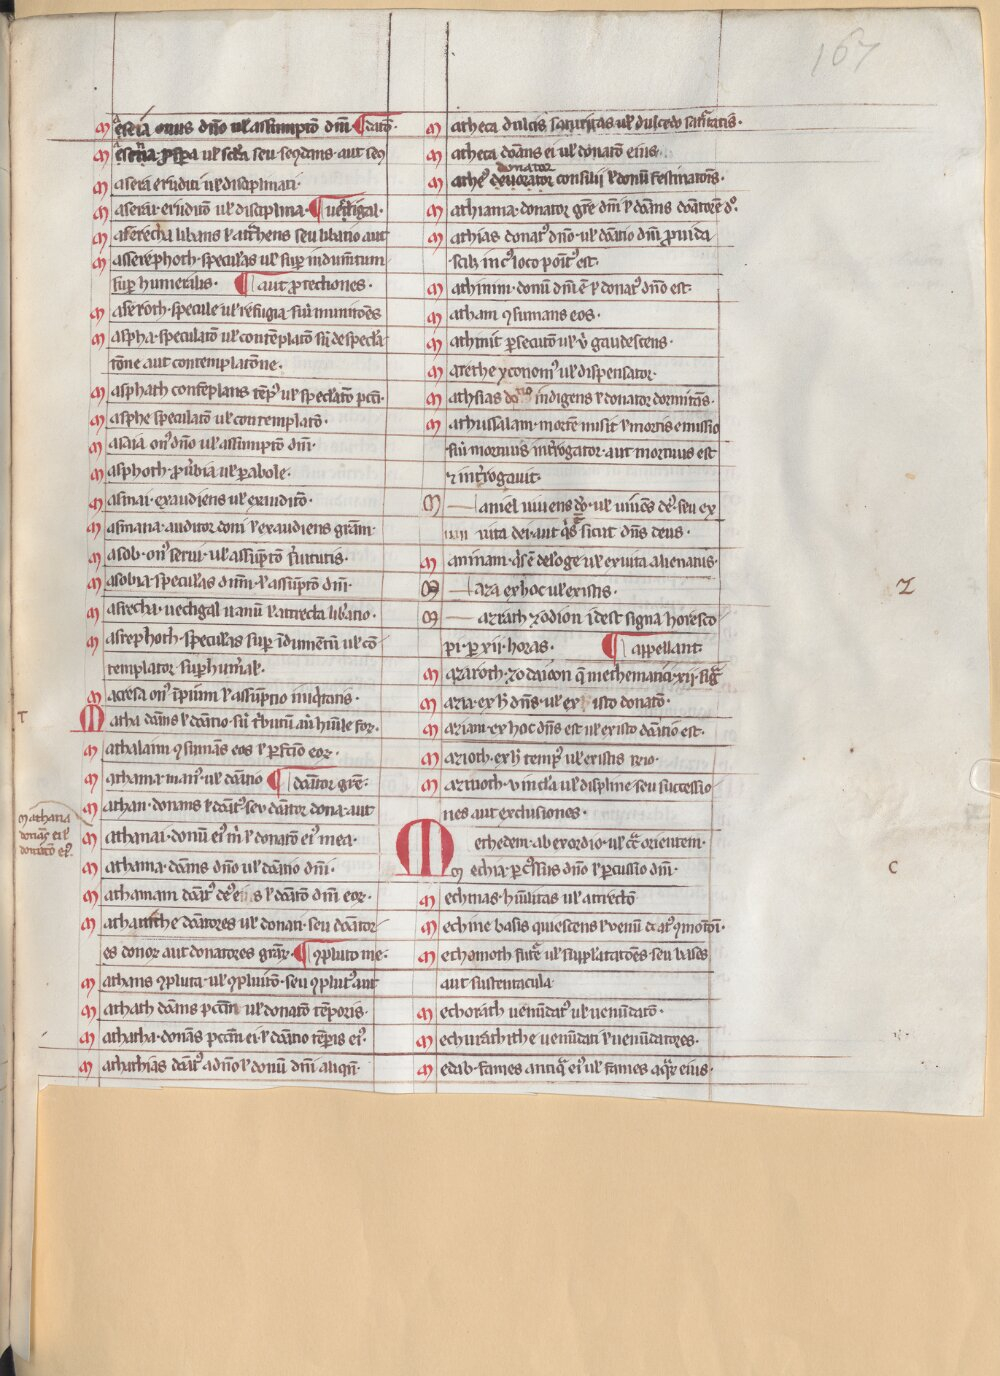 167
M aseia onus dño ul' assumptō dñi. ¶ datō.
M
M asera eruditi ul' disciplinati.
M aserar. eruditō ul' disciplina. ¶ uectigal.
M aserecha libans l' attrahens seu libatio aut
M asserephoth. speculas ul' sup indumtum
sup humeralis. ¶ aut protectiones.
M aseroth. specule ul' refugia. siū munitōes
M aspha. speculatō ul' contēplatō siū de specla
tōne aut contemplatōne.
M asphath contēplans tēp' ul' speclatō pcti.
M asphe speculatō ul' contemplatō.
M asaia on' dño ul' assumptō dñi.
M asphoth. puerbia ul' parabole.
M asmai. exaudiens ul' exauditō.
M asmana. auditor doni l' exaudiens grām.
M asob. on' serui. ul' assūptō s'uitutis.
M asobia. speculas dñm. l' assūptō dñi.
M asrecha. uectigal uanū l' attrecta libatio.
M asrephoth. speculas sup īdumētū ul' cō
templator. sup hum'al'.
M acresa on' īpium l' assūptio iniq'tatis.
T
M atha dōans l' dōatio. siū t'butū aū humile for.
M athalaim ꝯsumās eos l' p'fctio eor.
M athama. man' ul' dōatio ¶ dōator grē.
M athan. donans l' dōat'. seu dōator dona. aut
Mathana
donās ei l'
donatō ei'.
M athanai. donū ei' m' l' donatō ei' mea.
M athania. dōans dño ul' dōatio dñi.
M athaniam dōat' de' ei s l' dōatō dñi eor.
M athanithe dōatores ul' donati. seu dōator
es donor aut donatores grār. ¶ ꝯpluto me.
M athans ꝯpluta. ul' ꝯpluitō. seu ꝯplut' aut
M athath dōans pcctm ul' donatō tēporis.
M athatha. donās pcctm ei l' dōatio tēpis ei'.
M athathias dōat' a dño l' donū dñi aliqñ.
M atheca dulcis saturitas ul' dulcedo satur'tatis.
M atheca dōans ei ul' donatō eius.
donator
M athe' deuorator consilii l' donū festinatōis.
M athiama. donator grē dñi l' dōans dōatorē do'.
M athias donat' dño. ul' dōatio dñi. prouida
s' in c' loco poit' est.
M athinim. donū dñi ē l' donat' dño est.
M atham ꝯsumans eos.
M athinit psecutō ul' ū gaudescens.
M atethe yconom' ul' dispensator.
M athsias do no indigens l' donator dormitās.
M athussalam. mortē misit l' mortis emissio
siū mortuus int'rogator. aut mortuus est
⁊ int'rogauit.
M aniel uiuens do'. ul' uiuēs de'. seu ex
uita dei. aut q's sicut dñs deus.
M aninam. q's ē de loge ul' ex uita alienatus.
M aza ex hoc ul' existis.
Z
M azzath zodion idest signa horesco
pi. p xii. horas. ¶ appellant
M azaroth. zodaicon q̄ methematici xii. sig
M azia. ex h' dñs. ul' ex isto donatō.
M aziam. ex hoc dñs est ul' ex isto dōatio est.
M azioth. ex h' temp' ul' existis
M azuoth. vincla ul' displine. seu successio
nes aut exclusiones.
M ethedem. ab exordio. ul' cōt orientem.
C
M echia. p c'ssiis dño l' percussio dñi.
M echnas. hūilitas ul' attrectō
M echine basis quiescens l' uenū dat'. ꝯmotōi.
M echomoth futē ul' supplatatōes. seu bases
aut sustentacula
M echorath uenūdat' ul' uenūdatō.
M echurathithe uenūdati l' uenūdatores.
M edab. fames antiq̄ ei' ul' fames aqr eius.